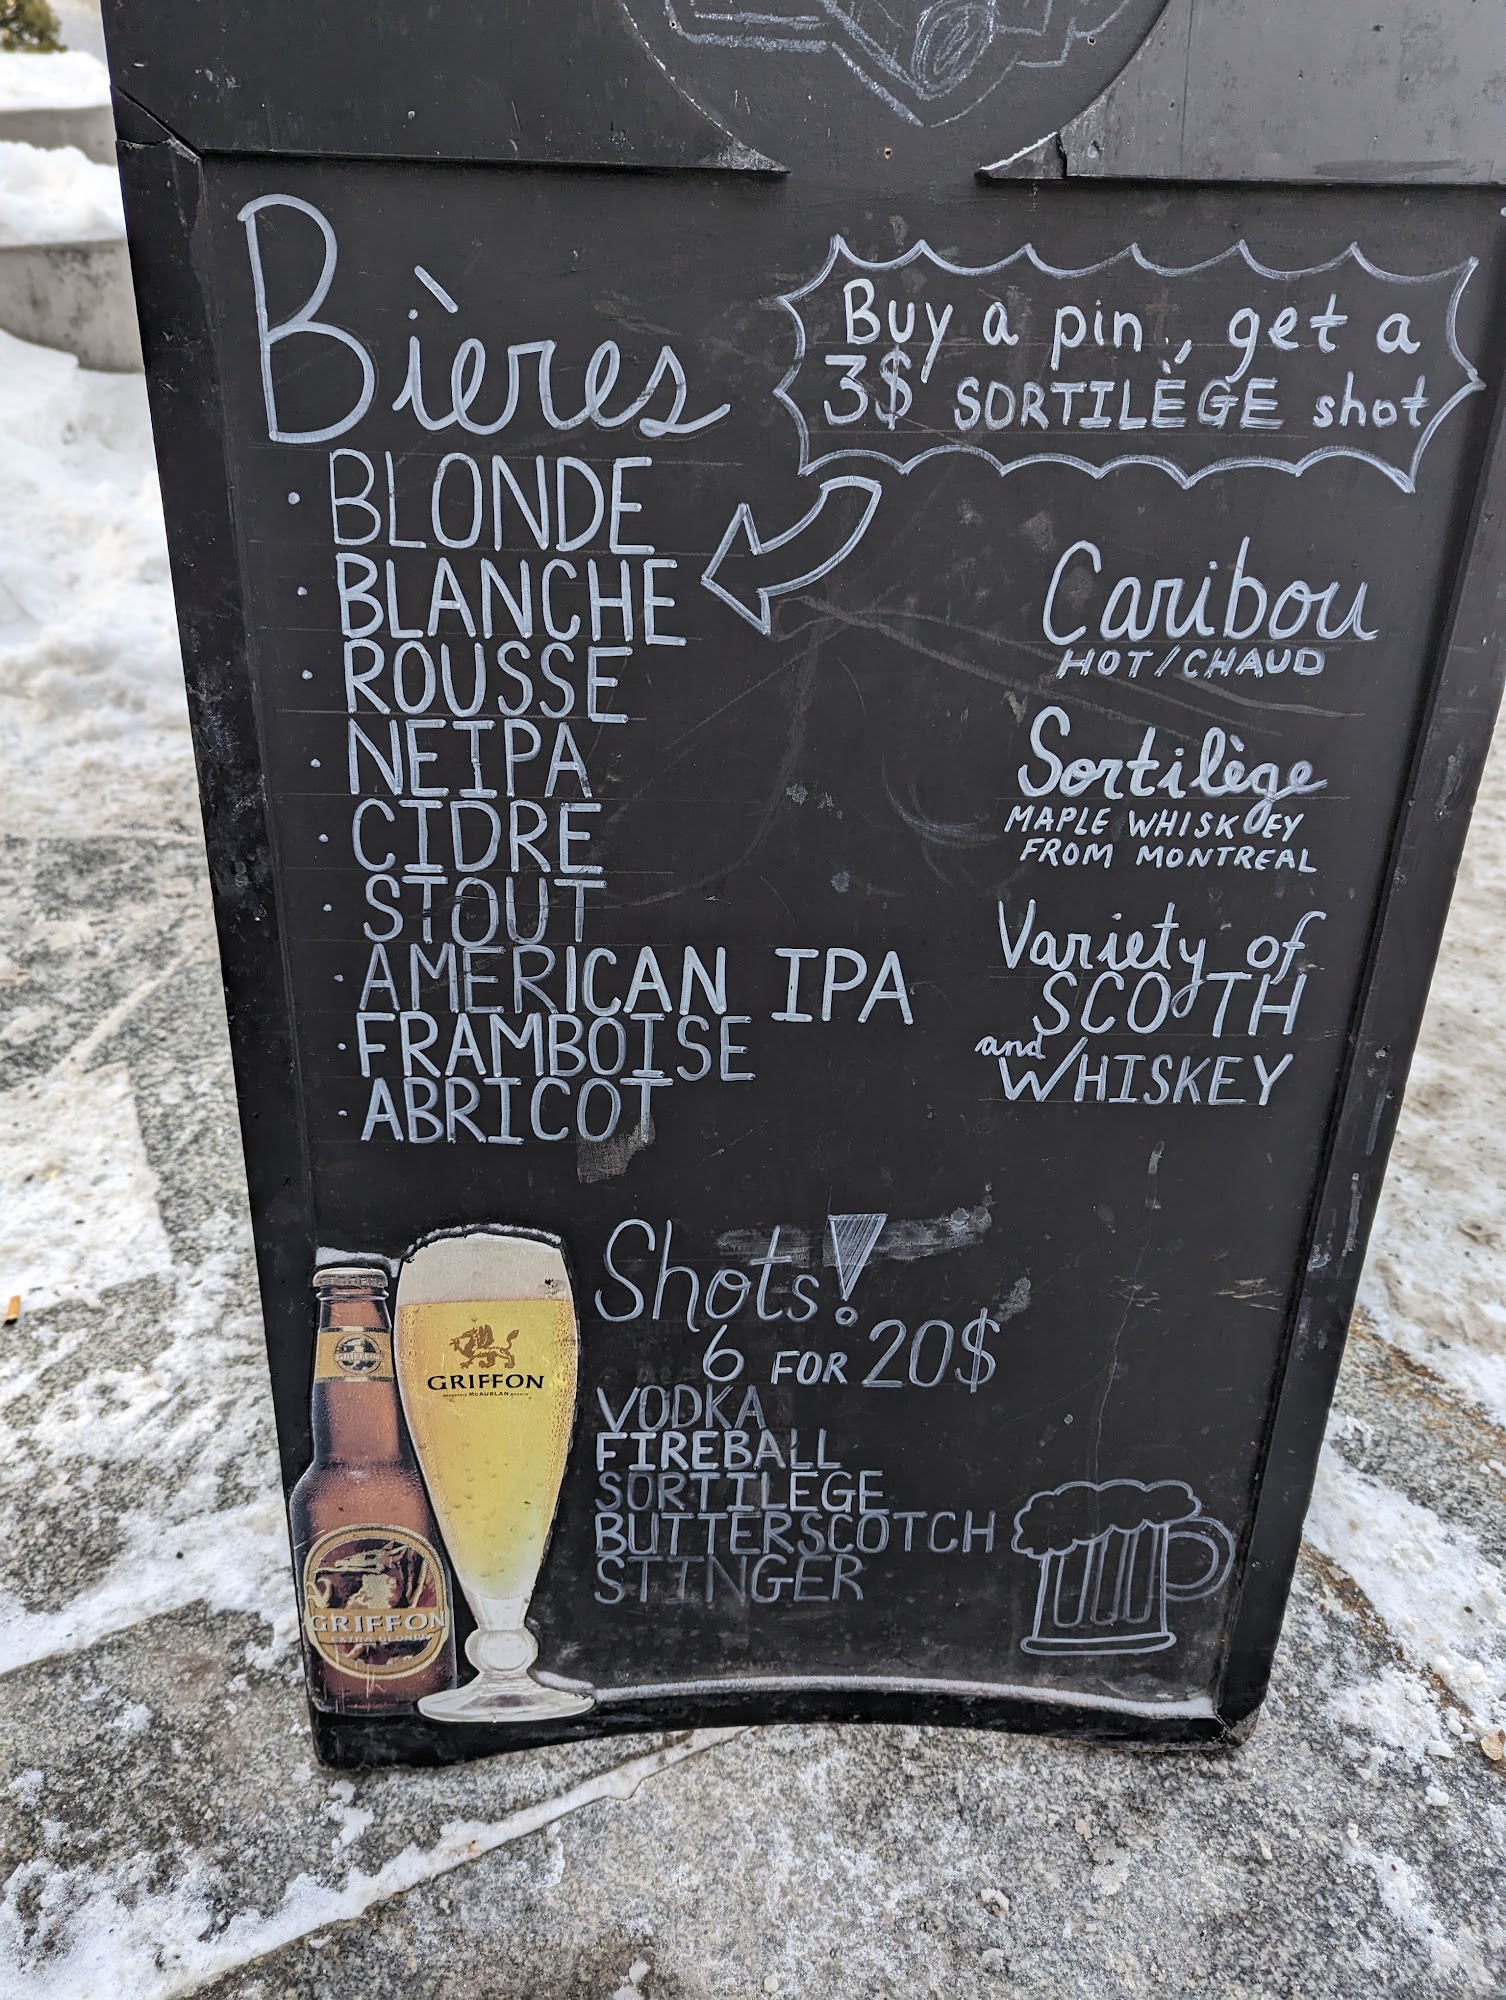 Bières
· BLONDE
· BLANCHE
· ROUSSE
· NEIPA
· CIDRE
· STOUT
· AMERICAN IPA
· FRAMBOISE
· ABRICOT
Buy a pin, get a
3$ SORTILÈGE shot
Caribou
HOT/CHAUD
Sortilège
MAPLE WHISKEY
FROM MONTREAL
Variety of
SCOTH
and WHISKEY
Shots!
6 FOR 20$
VODKA
FIREBALL
SORTILEGE
BUTTERSCOTCH
STINGER
GRIFFON
GRIFFON
EXTRA BLONDE
GRIFFON
BRASSERIE McAUSLAN BREWING